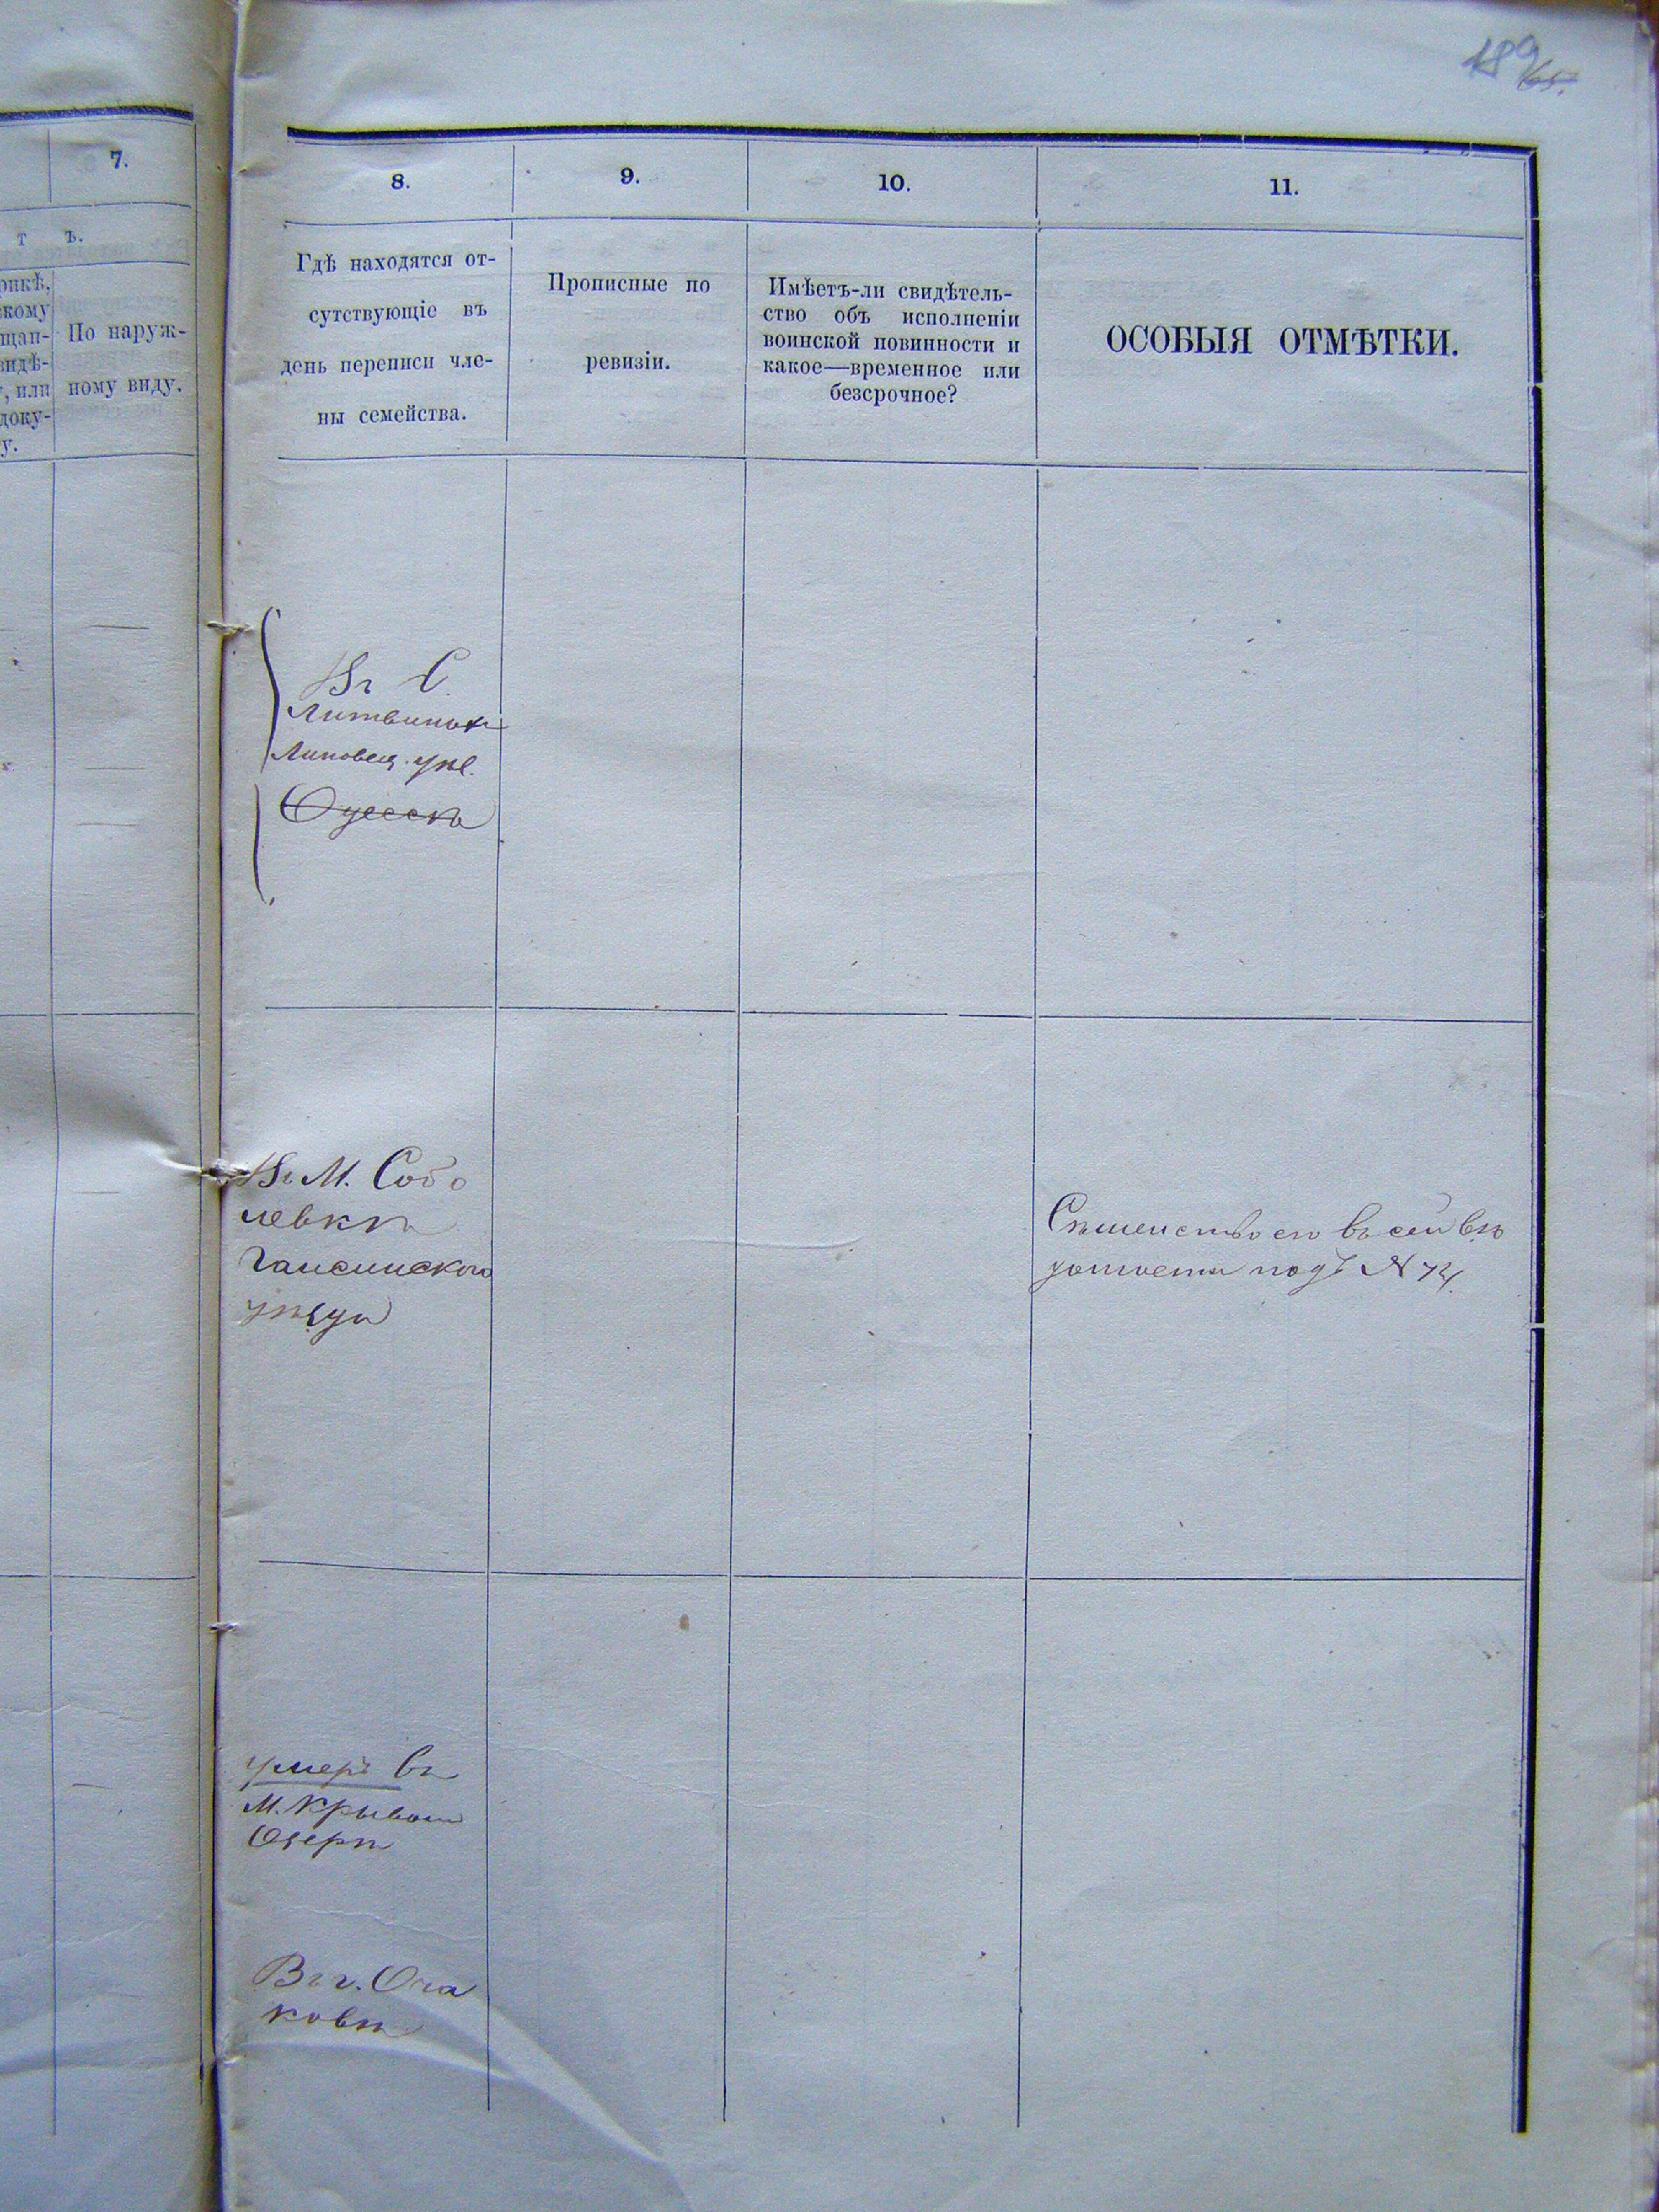 189
7.
т ъ.
рикѣ,
скому
щан-
видѣ-
, или
доку-
у.
По наруж-
ному виду.
8.
9.
10.
11.
Гдѣ находятся от-
сутствующіе въ
день переписи чле-
ны семейства.
Прописные по
ревизіи.
Имѣетъ-ли свидѣтель-
ство объ исполненіи
воинской повинности и
какое—временное или
безсрочное?
ОСОБЫЯ ОТМѢТКИ.
Въ С.
Литвинов
Липовец. уѣз.
Одессѣ
Въ М. Собо
левкѣ
Гайсинского
уѣзда
Сѣмейство его въ сей вѣ
домости подъ N 74.
умеръ въ
М. Крывом
Озерѣ
Въ г. Оча
ковѣ